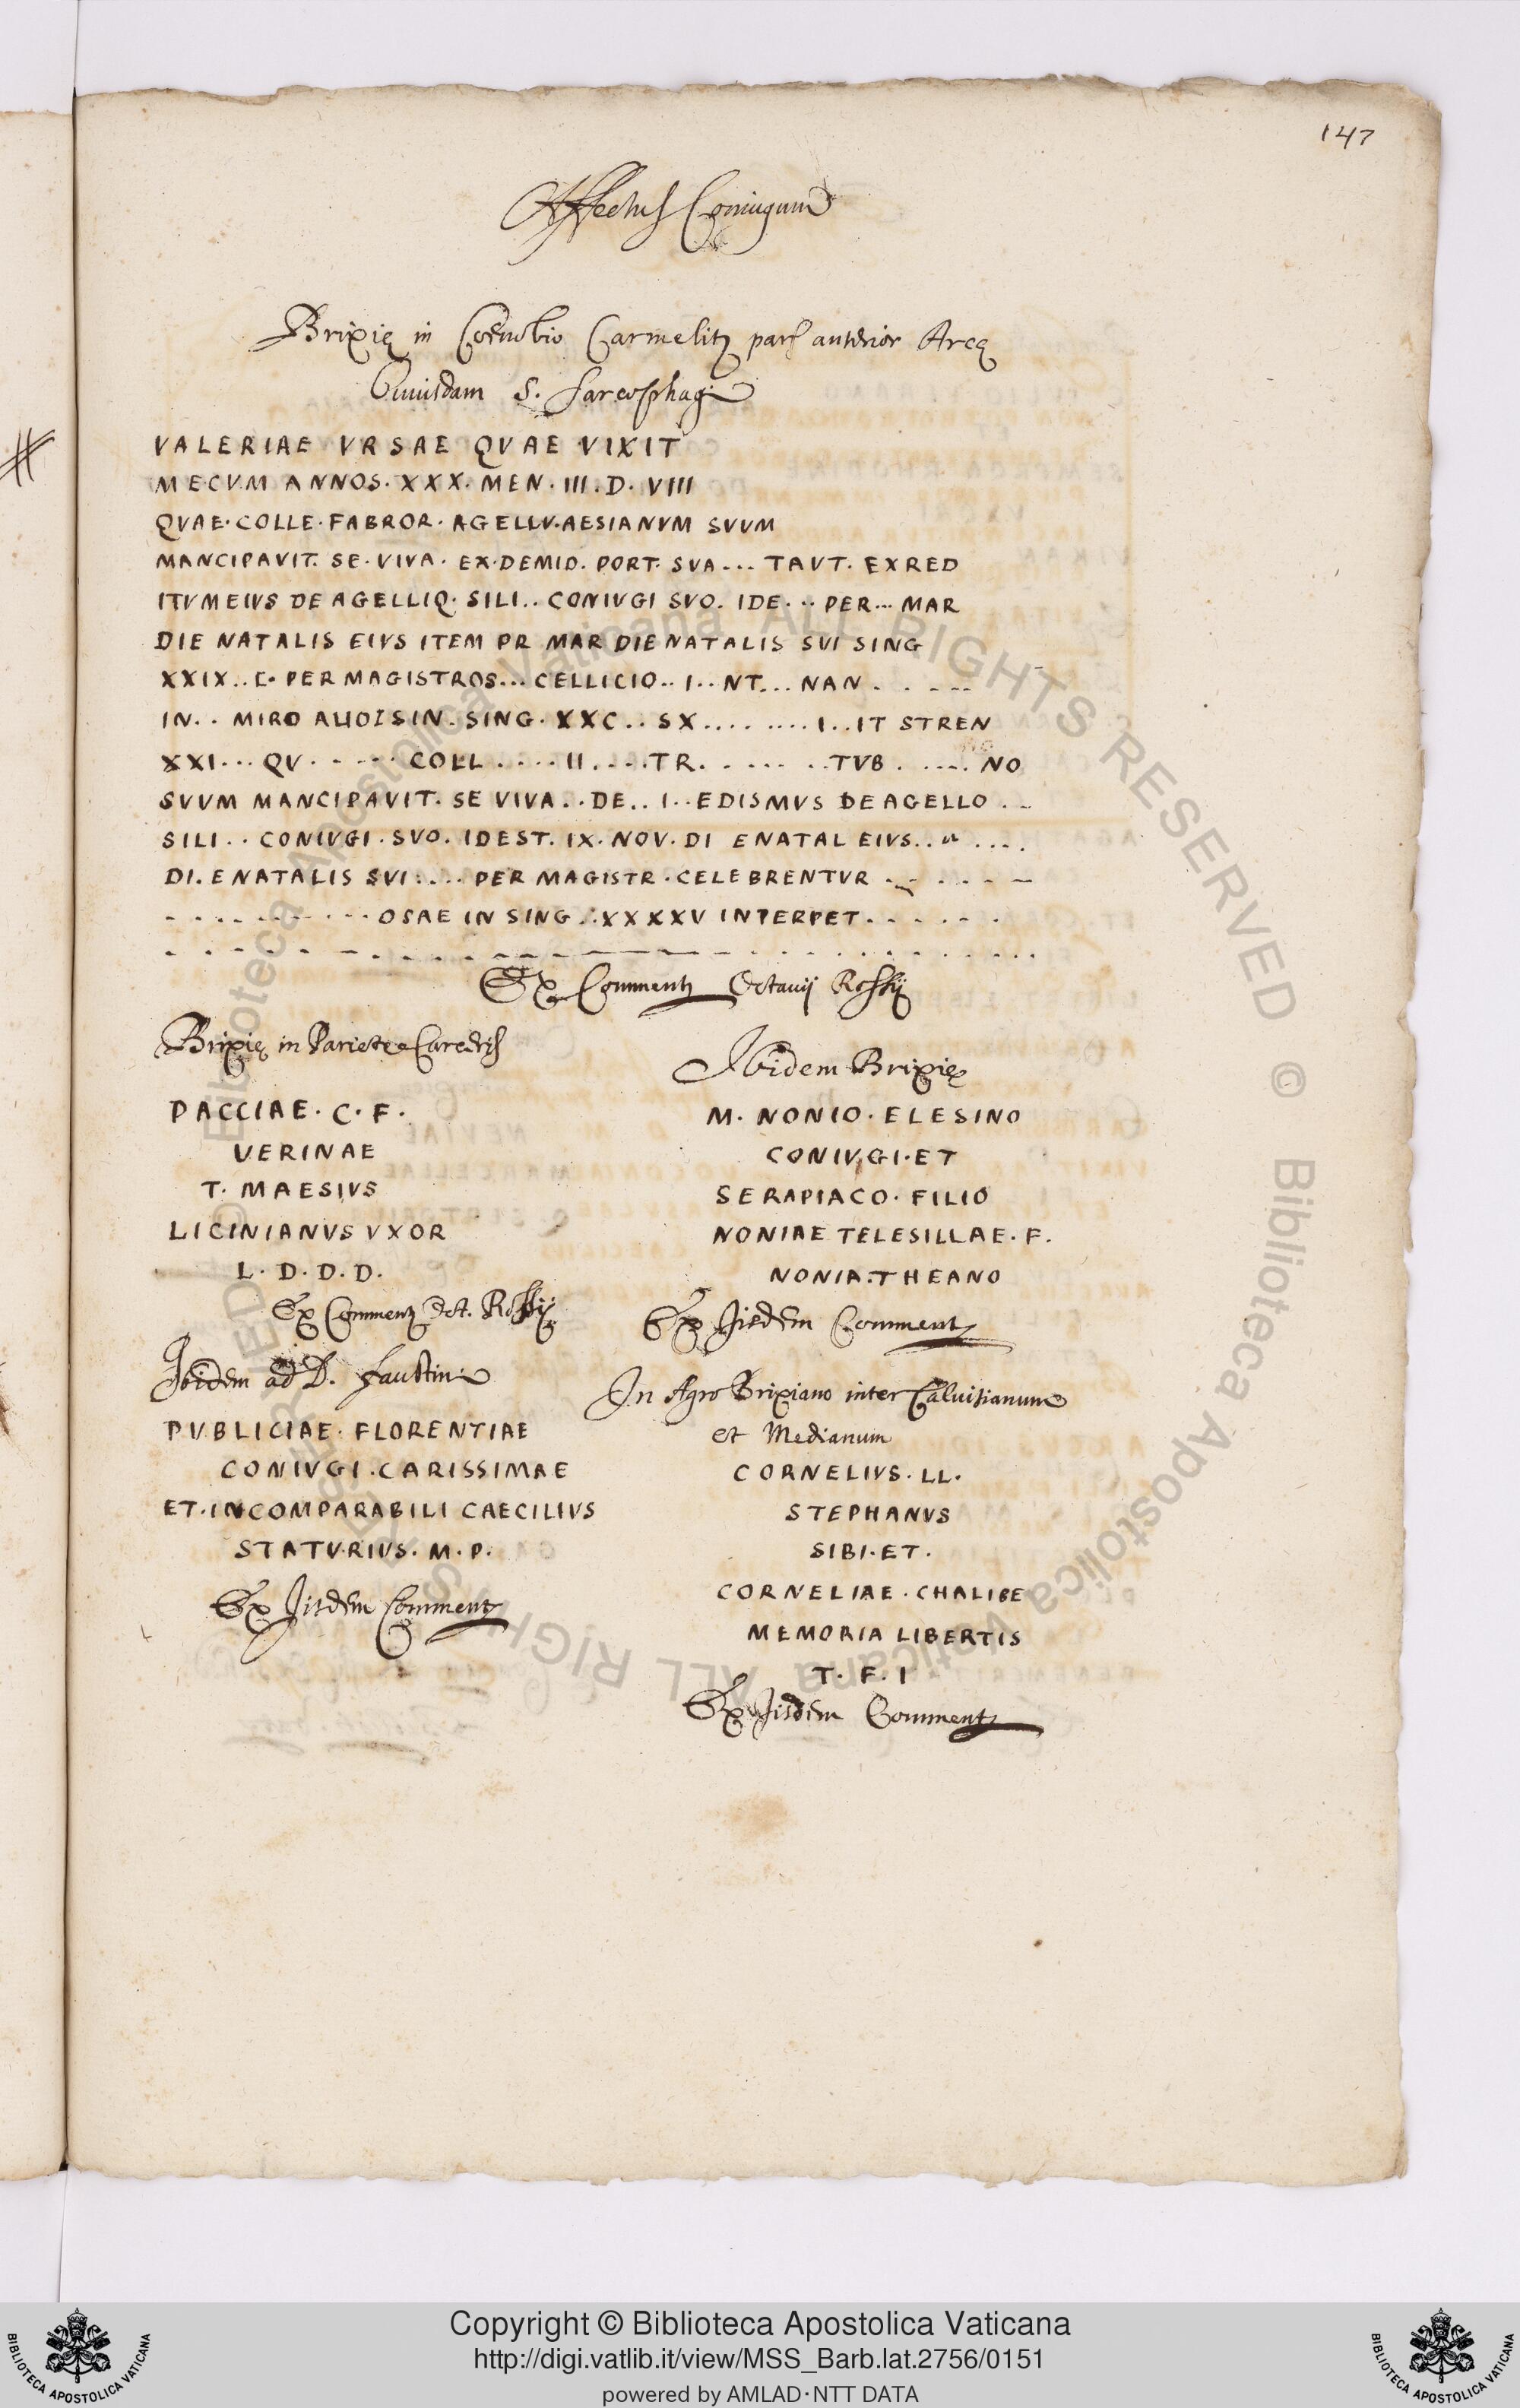 147
Affectus Coniugum
Brixię in Coenobio Carmelit; pars anterior Arcę
Cuiusdam S. Sarcophagi
VALERIAE VRSAE QVAE VIXIT
MECVM ANNOS. XXX. MEN. III. D. VIII
QVAE. COLLE. FABROR. AGELLV. AESIANVM SVVM
MANCIPAVIT. SE. VIVA. EX. DEMID. PORT. SVA... TAVT. EXRED
ITVMEIVS DE AGELLIQ. SILI.. CONIVGI SVO. IDE... PER... MAR
DIE NATALIS EIVS ITEM PR MAR DIE NATALIS SVI SING
XXIX.. E. PER MAGISTROS... CELLICIO.. I.. NT... NAN.....
IN.. MIRO ALIOISIN. SING. XXC.. SX........ I.. IT STREN
XXI... QV..... COLL.....II....TR.......TVB..... NO
SVVM MANCIPAVIT. SE VIVA.. DE.. I.. EDISMVS DE AGELLO..
SILI.. CONIVGI. SVO. IDEST. IX. NOV. DI ENATAL EIVS......
DI. ENATALIS SVI..... PER MAGISTR. CELEBRENTVR......
.......... OSAE IN SING.. XXXXV INTERPET.......
Ex Comment; Octavij Rossij
Brixię in Pariete
PACCIAE. C. F.
VERINAE
T. MAESIVS
LICINIANVS VXOR
L. D. D. D.
Ex Comment; Oct. Rossij
Ibidem Brixię
M. NONIO. ELESINO
CONIVGI. ET
SERAPIACO. FILIO
NONIAE TELESILLAE. F.
NONIA. THEANO
Ex Iisdem Comment;
Ibidem ad D. Faustini
PVBLICIAE. FLORENTIAE
CONIVGI. CARISSIMAE
ET. INCOMPARABILI CAECILIVS
STATVRIVS. M. P.
Ex Iisdem Comment;
In Agro Brixiano inter Calvisianum
et Medianum
CORNELIVS. LL.
STEPHANVS
SIBI. ET.
CORNELIAE. CHALIBE
MEMORIA LIBERTIS
T. F. I
Ex Iisdem Comment;
Copyright © Biblioteca Apostolica Vaticana
http://digi.vatlib.it/view/MSS_Barb.lat.2756/0151
powered by AMLAD·NTT DATA